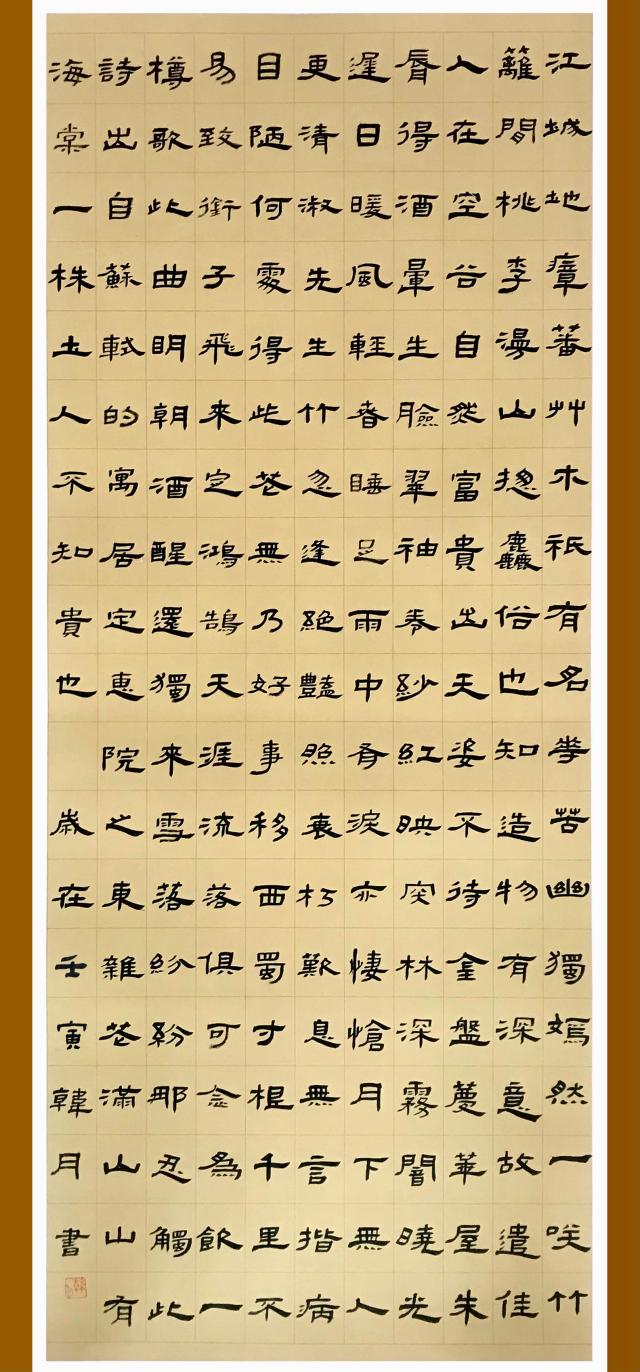 江城地瘴蕃艸木祇有名華苦幽獨嫣然一咲竹
籬間桃李漫山揔麤俗也知造物有深意故遣佳
人在空谷自然富貴出天姿不待金盤薦華屋朱
脣得酒暈生臉翠袖卷紗紅映肉林深霧闇曉光
遲日暖風輕春睡足雨中有淚亦悽愴月下無人
更清淑先生竹忽逢絕豔照衰朽歎息無言揩病
目陋何處得此花無乃好事移西蜀寸根千里不
易致銜子飛來定鴻鵠天涯流落俱可念為飲一
樽歌此曲明朝酒醒還獨來雪落紛紛那忍觸此
詩出自蘇軾的寓居定惠院之東雜花滿山山有
海棠一株土人不知貴也 歲在壬寅韓月書